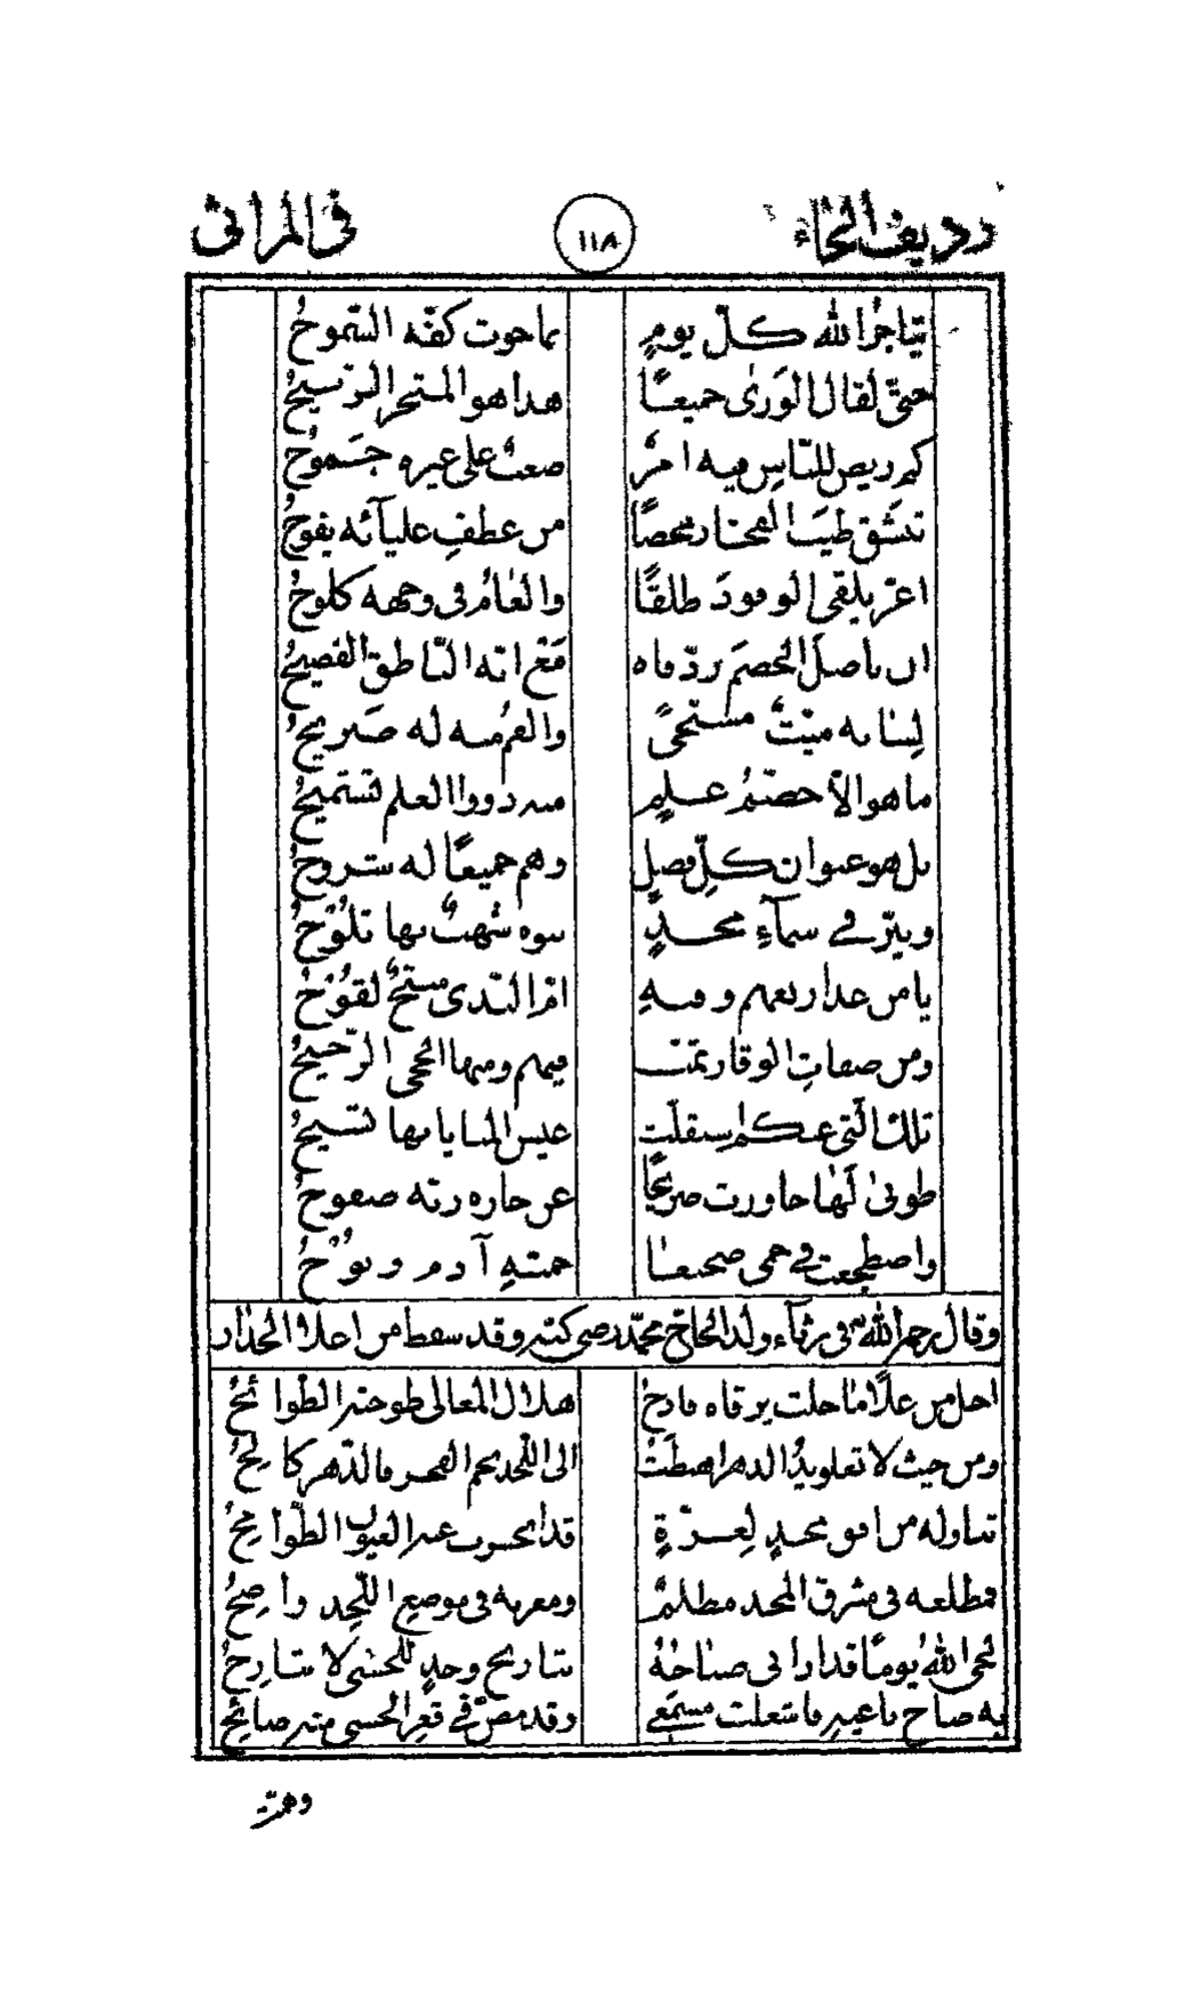 رديف الحاء ١١٨ في المراثي
يتاجر الله كلّ يومٍ بما حوت كفّه السّموحُ
حتّى لقال الورىٰ جميعًا هذا هو المتجر الرّبيحُ
كم ريض للنّاس فيه امرٌ صعبٌ على غيره جَموحُ
تنشّق طيبَ الفخار محضًا من عطفِ عليآئه يفوحُ
اغرّ يلقى الوفودَ طلقًا والعٰامُ في وجهه كلوحُ
ان ناضل الخصمَ ردّ فاه مع انّه النّاطق الفصيحُ
لسٰانه ميّتٌ مسجّىً والفم منه له ضريحُ
ما هو الّا خضمُّ علمٍ منه ذووا العلم تستميحُ
بل هو عنوان كلّ فضلٍ وهم جميعًا له شروحُ
ونيّر في سمآءِ مجدٍ بنوه شهبٌ بها تلُوحُ
يا من غدا ربعهم وفيهِ امّ النّدى منتجٌ لقوُحُ
ومن صفاتِ الوقار تمّت فيهم ومنها الحجى الرّجيحُ
تلك الّتي عنكم استقلّت عيس المنايا بها تسيحُ
طوبىٰ لهٰا جاورت ضريحًا عن جاره ربّه صفوحُ
واضطجعت في حمى ضجيعًا حمتهِ آدم ونوُحُ
وقال رحمه الله في رثآء ولد الحاجّ محمّد رضى كبّه وقد سقط من اعلا الجدار
احل من علًا ماٰ حلت يرقاه فادحُ هلال المعالى طوحته الطّوائحُ
ومن حيث لا تعلو يدُ الدهر اهبطت الى اللّحد نجم الفخر فالدّهر كالحُ
تناوله من افق مجدٍ لعزّةٍ قد انحسرت عنه العيون الطّوامحُ
فمطلعه في مشرق المجد مظلمٌ ومغربه في موضع اللّحد واضحُ
لحى اللهُ يومًا قد اراني صبٰاحهُ تباريح وجدٍ للحشى لا تبارحُ
به صاح ناعيهِ فاشعلت مسمعي وقد مضّ في قعر الحشى منه صائحُ